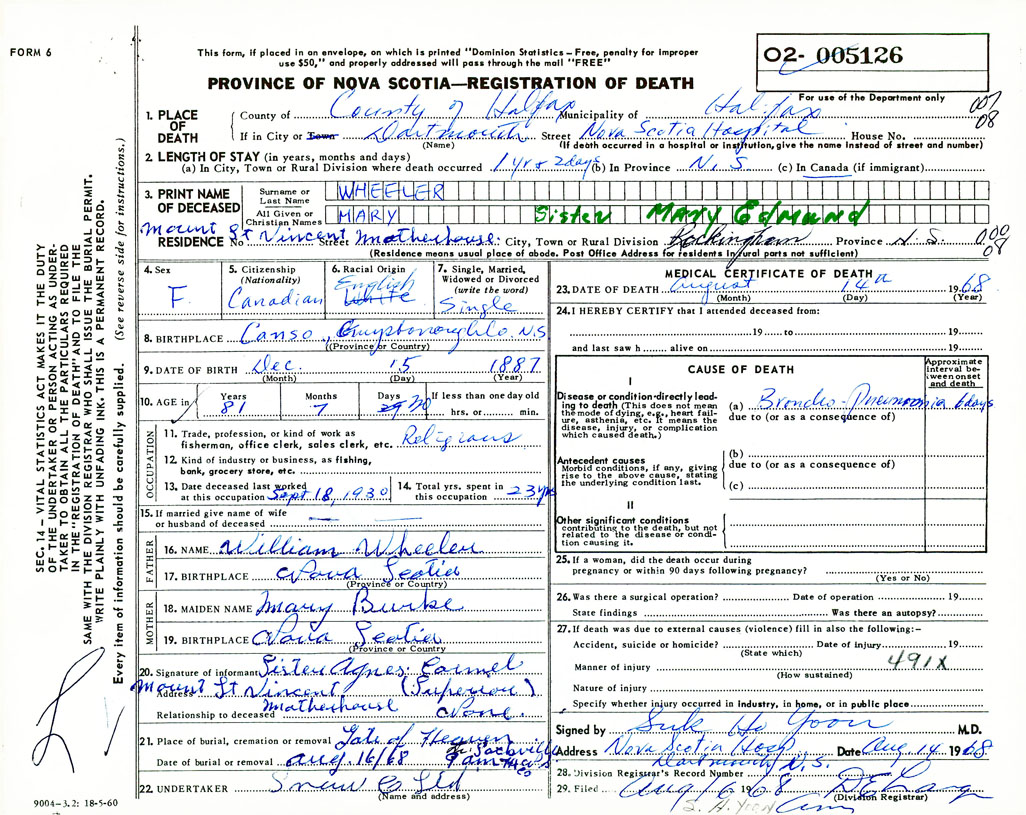 FORM 6
This form, if placed in an envelope, on which is printed "Dominion Statistics – Free, penalty for improper
use $50," and properly addressed will pass through the mail "FREE"
O2- 005126
PROVINCE OF NOVA SCOTIA—REGISTRATION OF DEATH
For use of the Department only
007
08
1. PLACE OF DEATH
County of County of Halifax Municipality of Halifax
If in City or Town Dartmouth Street Nova Scotia Hospital House No.
(Name) (If death occurred in a hospital or institution, give the name instead of street and number)
2. LENGTH OF STAY (in years, months and days)
(a) In City, Town or Rural Division where death occurred 1 yr & 2 days (b) In Province N. S. (c) In Canada (if immigrant)
3. PRINT NAME OF DECEASED
Surname or Last Name WHEELER
All Given or Christian Names MARY Sister MARY Edmund
RESIDENCE No Mount St Vincent Street Motherhouse City, Town or Rural Division Rockingham Province N. S. 000
08
(Residence means usual place of abode. Post Office Address for residents in rural parts not sufficient)
4. Sex F.
5. Citizenship (Nationality) Canadian
6. Racial Origin English White
7. Single, Married, Widowed or Divorced (write the word) Single
8. BIRTHPLACE Canso, Guysborough Co. N.S
(Province or Country)
9. DATE OF BIRTH Dec. 15 1887
(Month) (Day) (Year)
10. AGE in Years 81 Months 7 Days 29 30 If less than one day old hrs. or min.
OCCUPATION
11. Trade, profession, or kind of work as fisherman, office clerk, sales clerk, etc. Religious
12. Kind of industry or business, as fishing, bank, grocery store, etc.
13. Date deceased last worked at this occupation Sept 18, 1930
14. Total yrs. spent in this occupation 23 yrs
15. If married give name of wife or husband of deceased
FATHER
16. NAME William Wheeler
17. BIRTHPLACE Nova Scotia
(Province or Country)
MOTHER
18. MAIDEN NAME Mary Burke
19. BIRTHPLACE Nova Scotia
(Province or Country
20. Signature of informant Sister Agnes Carmel
Address Mount St Vincent (Superior)
Motherhouse
Relationship to deceased None
21. Place of burial, cremation or removal Gate of Heaven
Sackville
Date of burial or removal Aug. 16/68
22. UNDERTAKER Snow & Co Ltd
(Name and address)
9004–3.2: 18-5-60
MEDICAL CERTIFICATE OF DEATH
23. DATE OF DEATH August 14th 1968
(Month) (Day) (Year)
24. I HEREBY CERTIFY that I attended deceased from:
19 to 19
and last saw h alive on 19
CAUSE OF DEATH
Approximate interval between onset and death
I
Disease or condition directly leading to death (This does not mean the mode of dying, e.g., heart failure, asthenia, etc. It means the disease, injury, or complication which caused death.)
(a) Broncho-Pneumonia 6 days
due to (or as a consequence of)
Antecedent causes
Morbid conditions, if any, giving rise to the above cause, stating the underlying condition last.
(b)
due to (or as a consequence of)
(c)
II
Other significant conditions
contributing to the death, but not related to the disease or condition causing it.
25. If a woman, did the death occur during
pregnancy or within 90 days following pregnancy?
(Yes or No)
26. Was there a surgical operation? Date of operation 19
State findings Was there an autopsy?
27. If death was due to external causes (violence) fill in also the following:–
Accident, suicide or homicide? Date of injury 19
(State which)
491X
Manner of injury
(How sustained)
Nature of injury
Specify whether injury occurred in industry, in home, or in public place
Signed by Suk Ho Yoon M.D.
Address Nova Scotia Hosp. Date Aug 14 1968
Dartmouth N.S.
28. Division Registrar's Record Number
29. Filed Aug 16 1968
(Division Registrar)
S. H. YOON
SEC. 14 – VITAL STATISTICS ACT MAKES IT THE DUTY
OF THE UNDERTAKER OR PERSON ACTING AS UNDER-
TAKER TO OBTAIN ALL THE PARTICULARS REQUIRED
IN THE "REGISTRATION OF DEATH" AND TO FILE THE
SAME WITH THE DIVISION REGISTRAR WHO SHALL ISSUE THE BURIAL PERMIT.
WRITE PLAINLY WITH UNFADING INK. THIS IS A PERMANENT RECORD.
Every item of information should be carefully supplied. (See reverse side for instructions.)